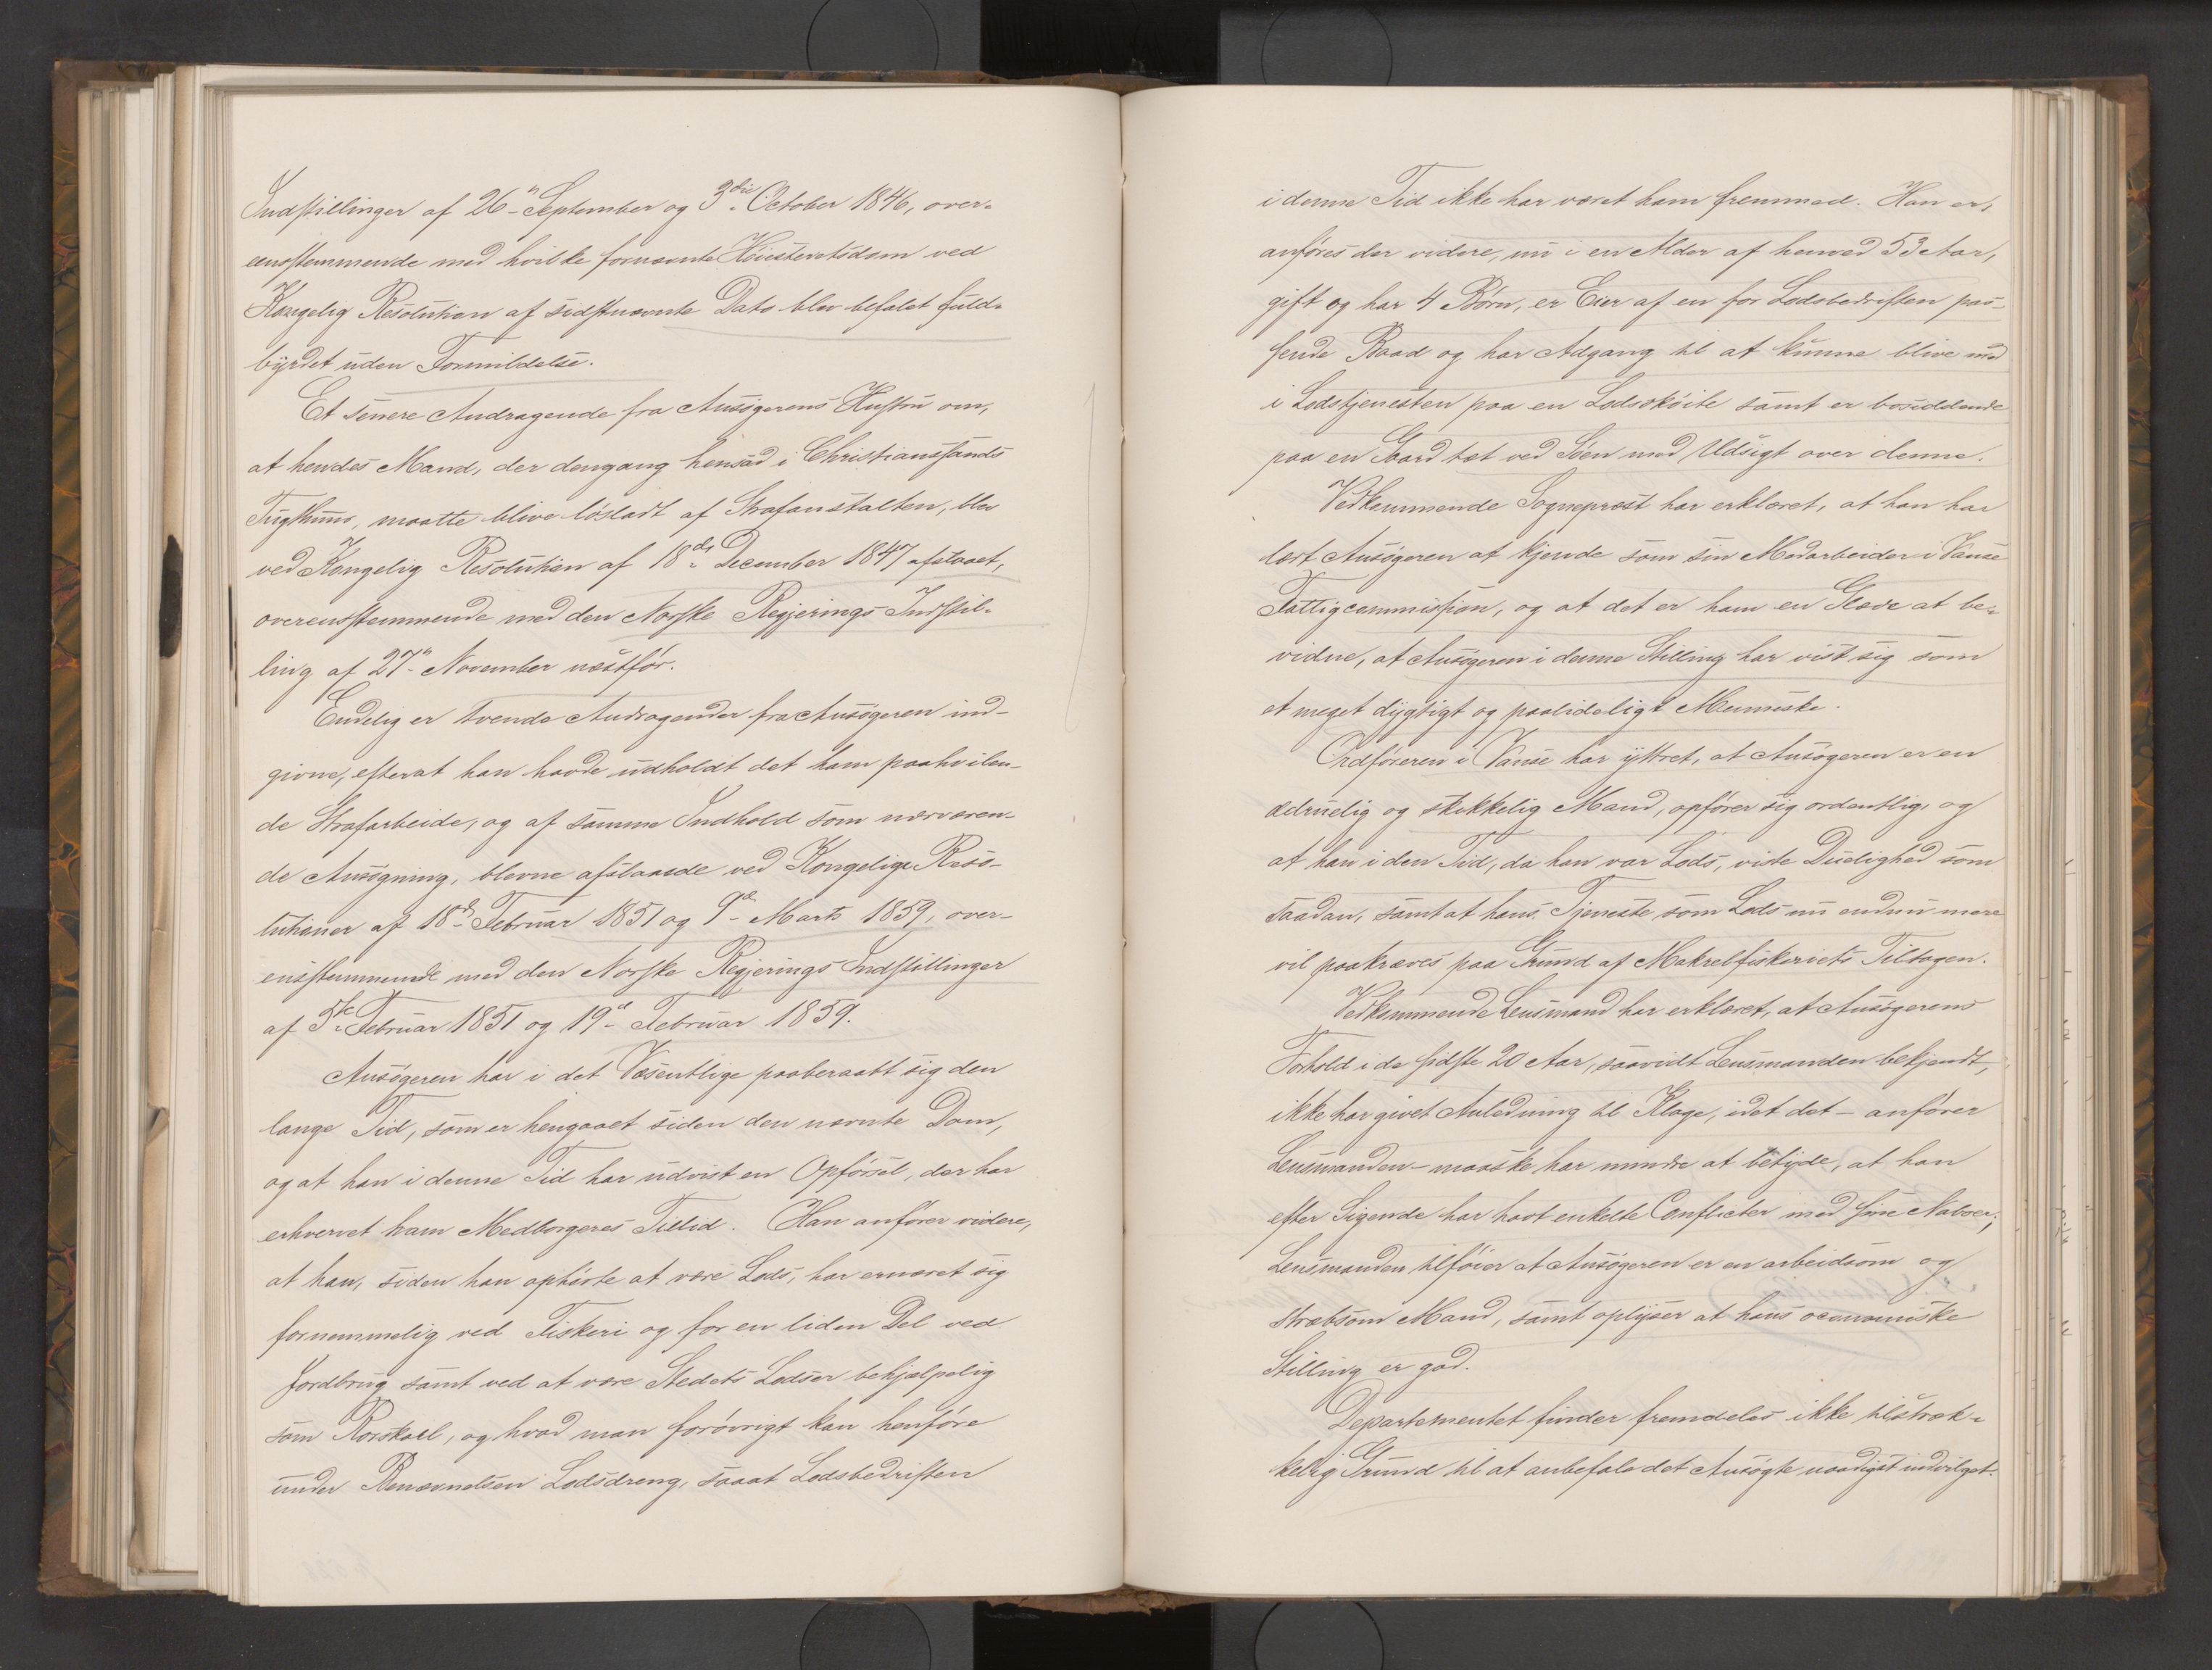 Indstillinger af 26n September og 3die October 1846, over-
eensstemmende med hvilke fornævnte Høiesteretsdom ved
Kongelig Resolution af sidstnævnte Dato blev befalet fuld-
byrdet uden Formildelse.
Et senere Andragende fra Ansøgerens Hustru om,
at hendes Mand, der dengang hensad i Christianssands
Tugthuus, maatte blive løsladt af Strafanstalten, blev
ved Kongelig Resolution af 18de December 1847 afslaaet,
overensstemmende med den Norske Regjerings Indstil-
ling af 27n November næstfør.
Endelig er tvende Andragender fra Ansøgeren ind-
givne, efterat han havde udholdt det ham paahvilen-
de Strafarbeide, og af samme Indhold som nærværen-
de Ansøgning, blevne afslaaede ved Kongelige Reso-
lutioner af 18de Februar 1851 og 9de Marts 1859, over-
ensstemmende med den Norske Regjerings Indstillinger
af 5te Februar 1851 og 19de Februar 1859.
Ansøgeren har i det Væsentlige paaberaabt sig den
lange Tid, som er hengaaet siden den nævnte Dom,
og at han i denne Tid har udvist en Opførsel, der har
erhvervet ham Medborgeres Tillid. Han anfører videre,
at han, siden han ophørte at være Lods, har ernæret sig
fornemmelig ved Fiskeri og for en liden Del ved
Jordbrug samt ved at være Stedets Lodser behjælpelig
som Rorskarl, og hvad man forøvrigt kan henføre
under Benævnelsen Lodsdreng, saaat Lodsbedriften
i denne Tid ikke har været ham fremmed. Han er,
anføres der videre, nu i en Alder af henved 53 Aar,
gift og har 4 Børn, er Eier af en for Lodsbedriften pas-
sende Baad og har Adgang til at kunne blive med
i Lodstjenesten paa en Lodsskøite samt er bosiddende
paa en Gaard tæt ved Søen med Udsigt over denne.
Vedkommende Sognepræst har erklæret, at han har
lært Ansøgeren at kjende som sin Medarbeider i Vanse
Fattigcommission, og at det er ham en Glæde at be-
vidne, at Ansøgeren i denne Stilling har vist sig som
et meget dygtigt og paalideligt Menneske.
Ordføreren i Vanse har yttret, at Ansøgeren er en
ædruelig og skikkelig Mand, opfører sig ordentlig, og
at han i den Tid, da han var Lods, viste Duelighed som
saadan, samt at hans Tjeneste som Lods nu endnu mere
vil paakræves paa Grund af Makrelfiskeriets Tiltagen.
Vedkommende Lensmand har erklæret, at Ansøgerens
Forhold i de sidste 20 Aar, saavidt Lensmanden bekjendt,
ikke har givet Anledning til Klage, idet det - anfører
Lensmanden - maaske har mindre at betyde, at han
efter Sigende har havt enkelte Conflicter med sine Naboer;
Lensmanden tilføier at Ansøgeren er en arbeidsom og
stræbsom Mand, samt oplyser at hans oeconomiske
Stilling er god.
Departementet finder fremdeles ikke tilstræk-
kelig Grund til at anbefale det Ansøgte naadigst indvilget.